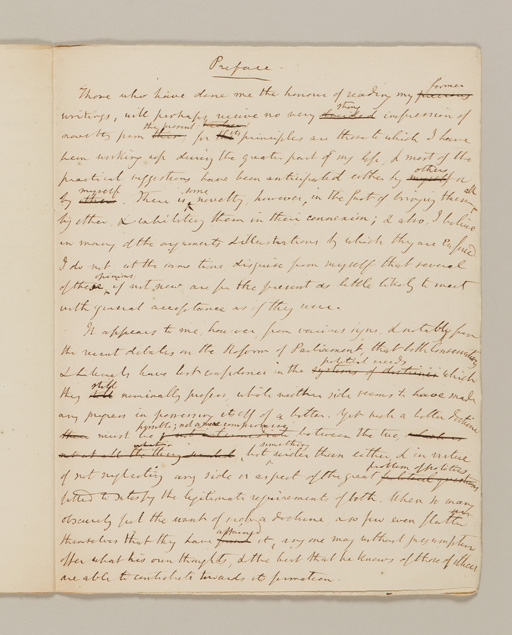 Preface.
Those who have done me the honour of reading my previous former
writings, will perhaps receive no very decided strong impression of
novelty from the present; for the principles are those to which I have
been working up during the greater part of my life, & most of the
practical suggestions have been anticipated either by myself others or
by others myself. There is some novelty, however, in the fact of bringing them all
together, & exhibiting them in their connexion; & also I believe
in many of the arguments & illustrations by which they are enforced.
I do not at the same time disguise from myself that several
of these opinions, if not new, are for the present as little likely to meet
with general acceptance as if they were.
It appears to me, however from various signs, & notably from
the recent debates on the Reform of Parliament, that both Conservatives
& Liberals have lost confidence in the political creeds which
they still nominally profess, while neither side seems to have made
any progress in possessing itself of a better. Yet such a better doctrine
must be possible; not a mere compromise between the two,
but something wider than either, & in virtue
of not neglecting any side or aspect of the great problem of politics,
fitted to satisfy the legitimate requirements of both. When so many
obscurely feel the want of such a doctrine & so few even flatter
themselves that they have found attained it, any one may without presumption
offer what his own thoughts, & the best that he knows of those of others,
are able to contribute towards its formation.